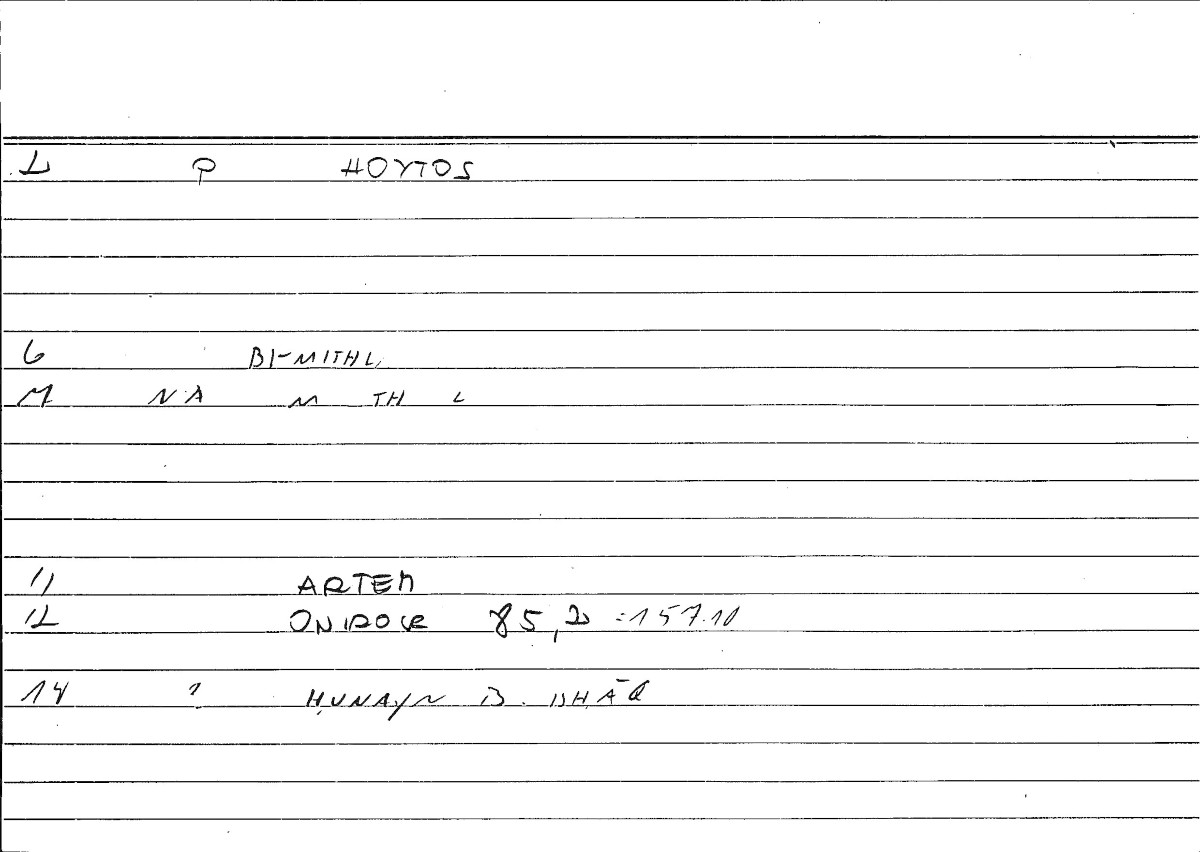 2 P HOYTOS
6 BI-MITHL
M NA M TH L
11 ARTEM
12 ONIROCR 85,2 =157.10
14 1 ḤUNAYN B. ISḤĀQ